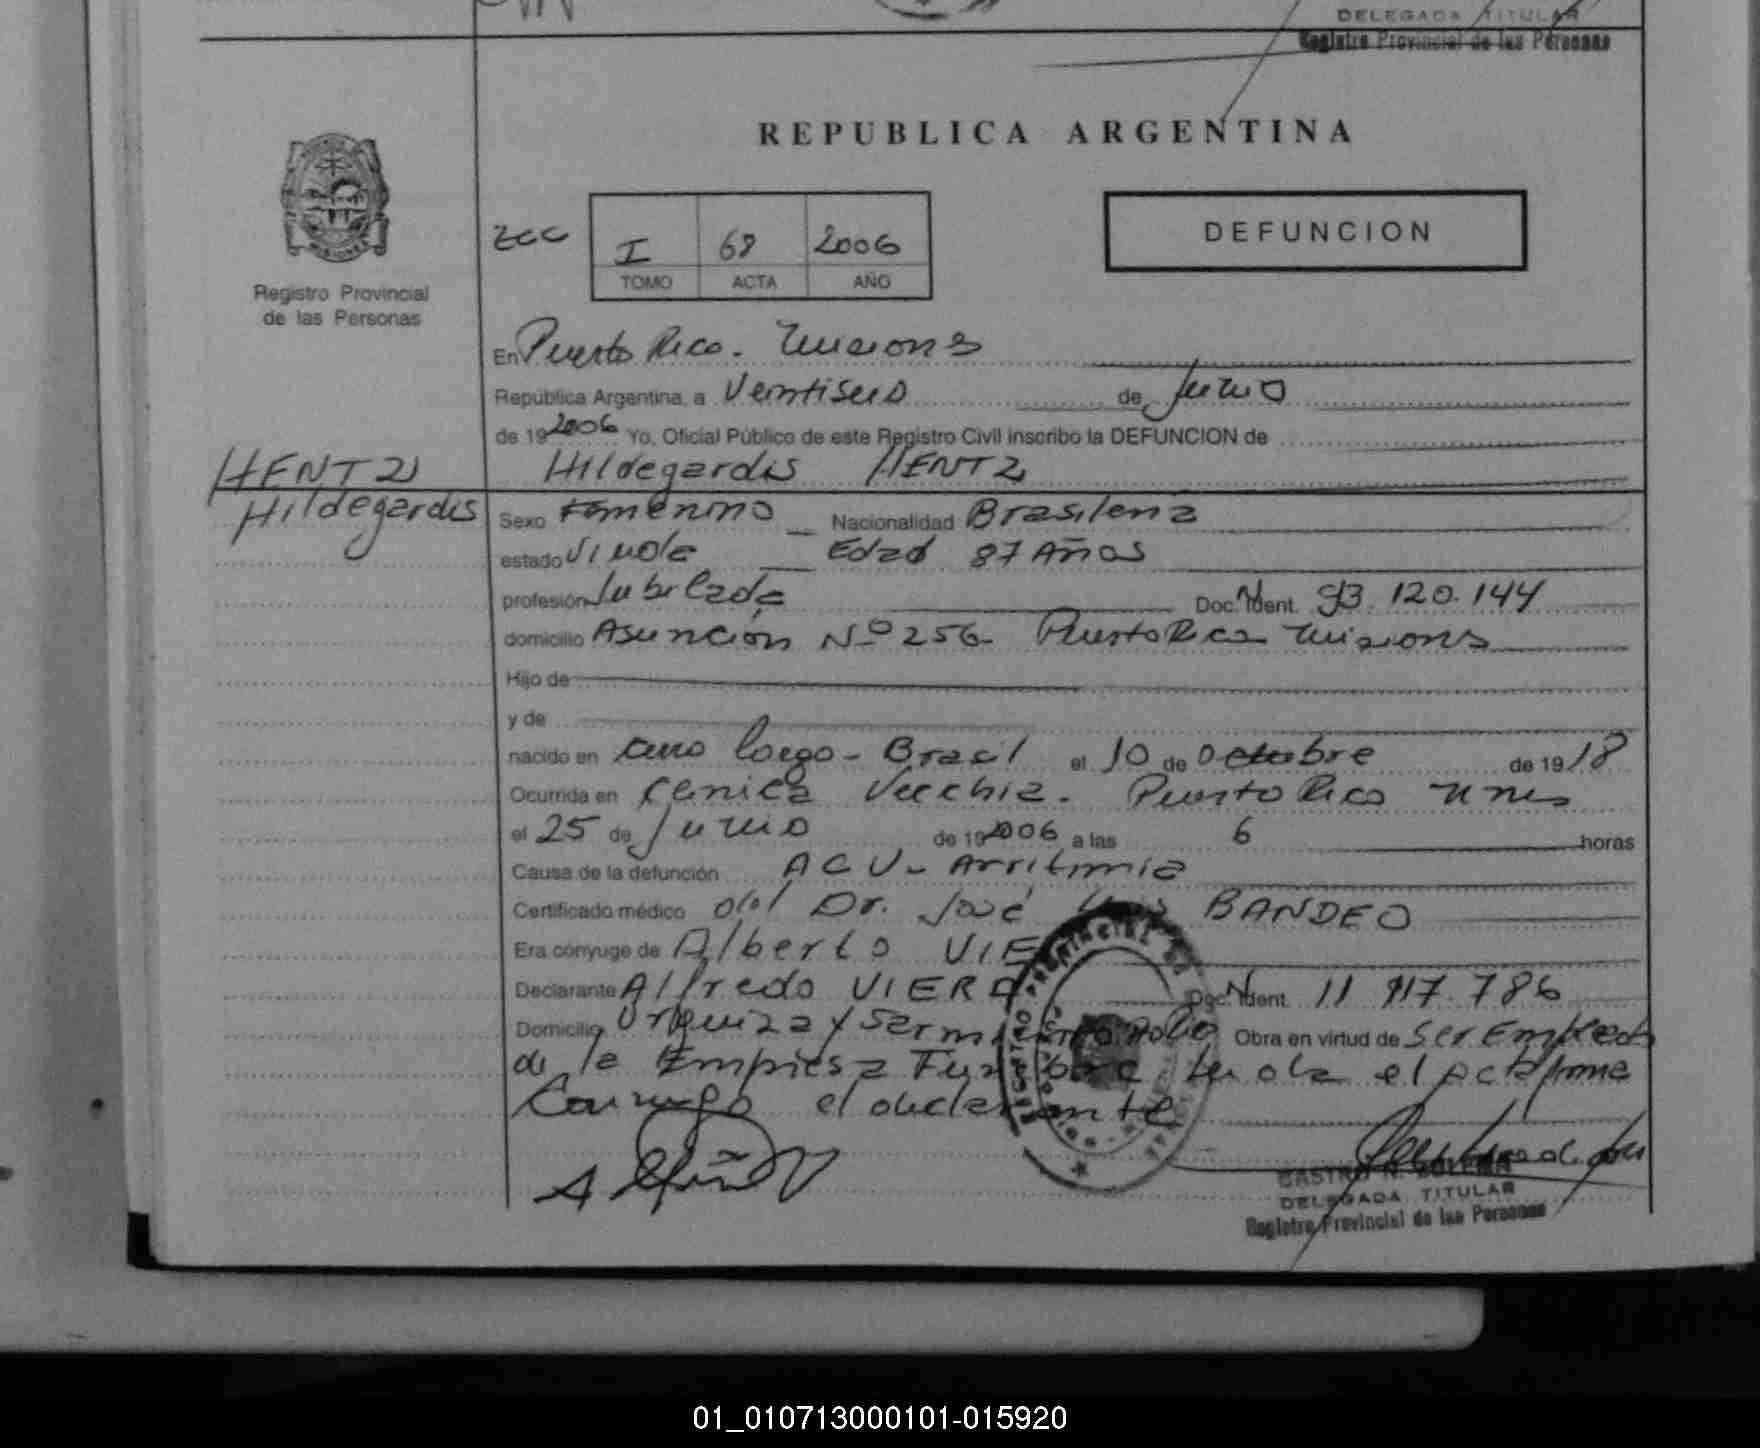 DELEGADA TITULAR
Registro Provincial de las Personas
REPUBLICA ARGENTINA
DEFUNCION
I 68 2006
TOMO ACTA AÑO
MISIONES
Registro Provincial
de las Personas
En Puerto Rico. Misiones
República Argentina, a Veintiseis de Junio
de 19 2006 Yo, Oficial Público de este Registro Civil inscribo la DEFUNCION de
HENTZ
Hildegardis
Hildegardis HENTZ
Sexo Femenino Nacionalidad Brasileña
estado Viuda Edad 87 Años
profesión Jubilada Doc. Ident. 93.120.144
domicilio Asunción Nº 256 Puerto Rico Misiones
Hijo de
y de
nacido en Cerro Largo - Brasil el 10 de Octubre de 19 18
Ocurrida en Clinica Vecchia. Puerto Rico Mnes
el 25 de Junio de 19 2006 a las 6 horas
Causa de la defunción ACV - Arritmia
Certificado médico del Dr. José Luis BANDEO
Era cónyuge de Alberto
Declarante Alfredo VIERA Doc. Ident. 11 917.786
Domicilio Urquiza y Obra en virtud de ser Empleado
de la Empresa Funebre, leida el acta firma
Conmigo el declarante
DELEGADA TITULAR
Registro Provincial de las Personas
01_010713000101-015920